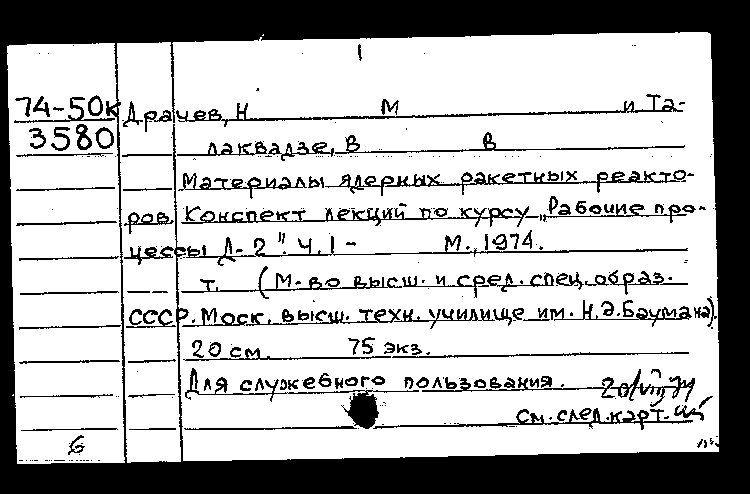 1
74-50к Драчев, Н М и Та-
3580 лаквадзе, В В
Материалы ядерных ракетных реакто-
ров. Конспект лекций по курсу „Рабочие про-
цессы Д-2". Ч.1- М., 1974.
т. (М-во высш. и сред. спец. образ.
СССР. Моск. высш. техн. училище им. Н.Э. Баумана).
20 см. 75 экз.
Для служебного пользования. 20/VIII 74
см. след. карт.
6